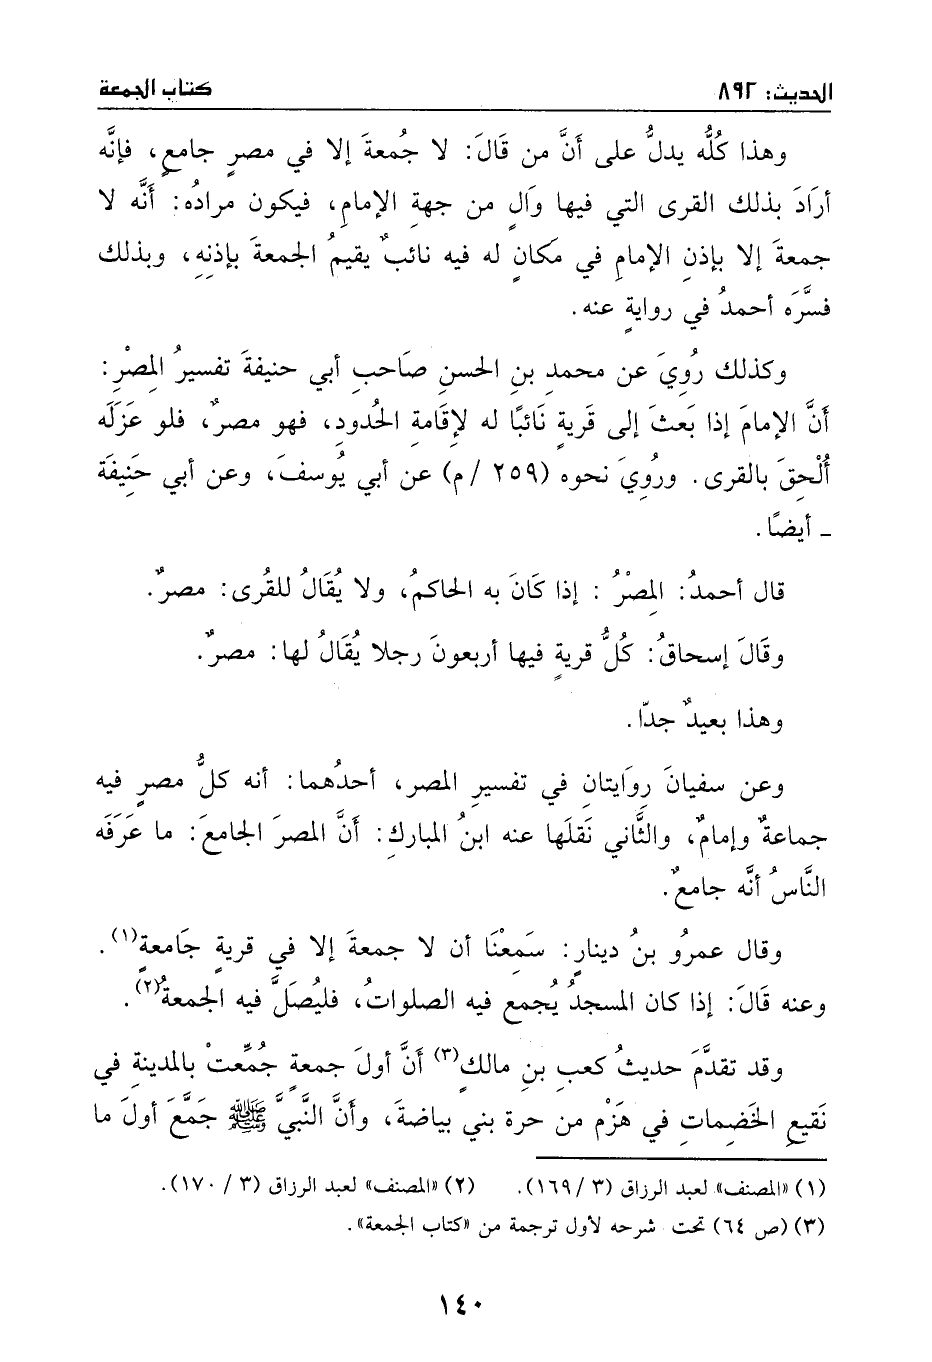 الحديث: ٨٩٢
كتاب الجمعة
وهذا كُلُّه يدلُّ على أَنَّ من قَالَ: لا جُمعةَ إلا في مصرٍ جامعٍ، فإنَّه
أرَادَ بذلك القرى التي فيها وَالٍ من جهةِ الإمامِ، فيكون مرادُه: أنَّه لا
جمعةَ إلا بإذنِ الإمامِ في مَكانٍ له فيه نائبٌ يقيمُ الجمعةَ بإذنِهِ، وبذلك
فسَّرَه أحمدُ في روايةٍ عنه.
وكذلك رُوِيَ عن محمدِ بنِ الحسنِ صَاحبِ أبي حنيفةَ تفسيرُ المِصْرِ:
أنَّ الإمامَ إذا بَعثَ إلى قَريةٍ نَائبًا له لإقَامةِ الحُدودِ، فهو مصرٌ، فلو عَزَلَه
أُلْحِقَ بالقرى. ورُوِيَ نحوه (٢٥٩ /م) عن أبي يُوسفَ، وعن أبي حَنِيفَة
ـ أيضًا.
قال أحمدُ: المِصْرُ : إذا كَانَ به الحاكمُ، ولا يُقَالُ للقُرى: مصرٌ.
وقَالَ إسحاقُ: كُلُّ قريةٍ فيها أربعونَ رجلا يُقَالُ لها: مصرٌ.
وهذا بعيدٌ جدّا.
وعن سفيانَ روَايتانِ في تفسيرِ المصر، أحدُهما: أنه كلُّ مصرٍ فيه
جماعةٌ وإمامٌ، والثَّاني نَقلَها عنه ابنُ المباركِ: أنَّ المصرَ الجامعَ: ما عَرَفَه
النَّاسُ أنَّه جامعٌ.
وقال عمرُو بنُ دينارٍ: سَمِعْنَا أن لا جمعةَ إلا في قريةٍ جَامعةٍ(١).
وعنه قَالَ: إذا كان المسجدُ يُجمع فيه الصلواتُ، فليُصَلَّ فيه الجمعةُ(٢).
وقد تقدَّمَ حديثُ كعبِ بنِ مالكٍ(٣) أنَّ أولَ جمعةٍ جُمِّعتْ بالمدينةِ في
نَقيعِ الخَضِماتِ في هَزْم من حرة بني بياضةَ، وأنَّ النَّبيَّ ﷺ جَمَّعَ أولَ ما
(١) «المصنف» لعبد الرزاق (٣ /١٦٩). (٢) «المصنف» لعبد الرزاق (٣ / ١٧٠).
(٣) (ص ٦٤) تحت شرحه لأول ترجمة من «كتاب الجمعة».
١٤٠